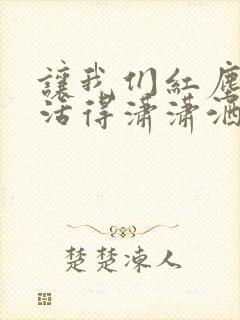 讓我们紅塵
活得瀟瀟洒
楚楚凍人